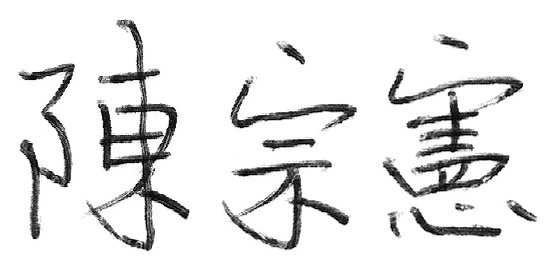 陳宗憲